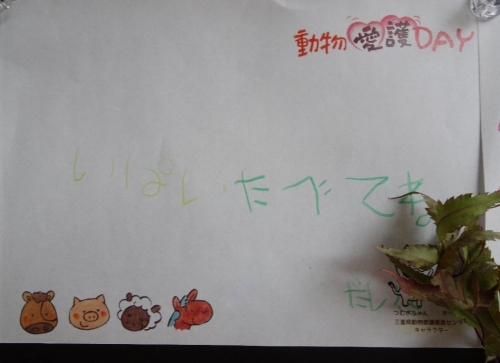 動物愛護DAY
いぱいたべてね
だし
つむぎちゃん
三重県動物愛護推進センター
キャラクター